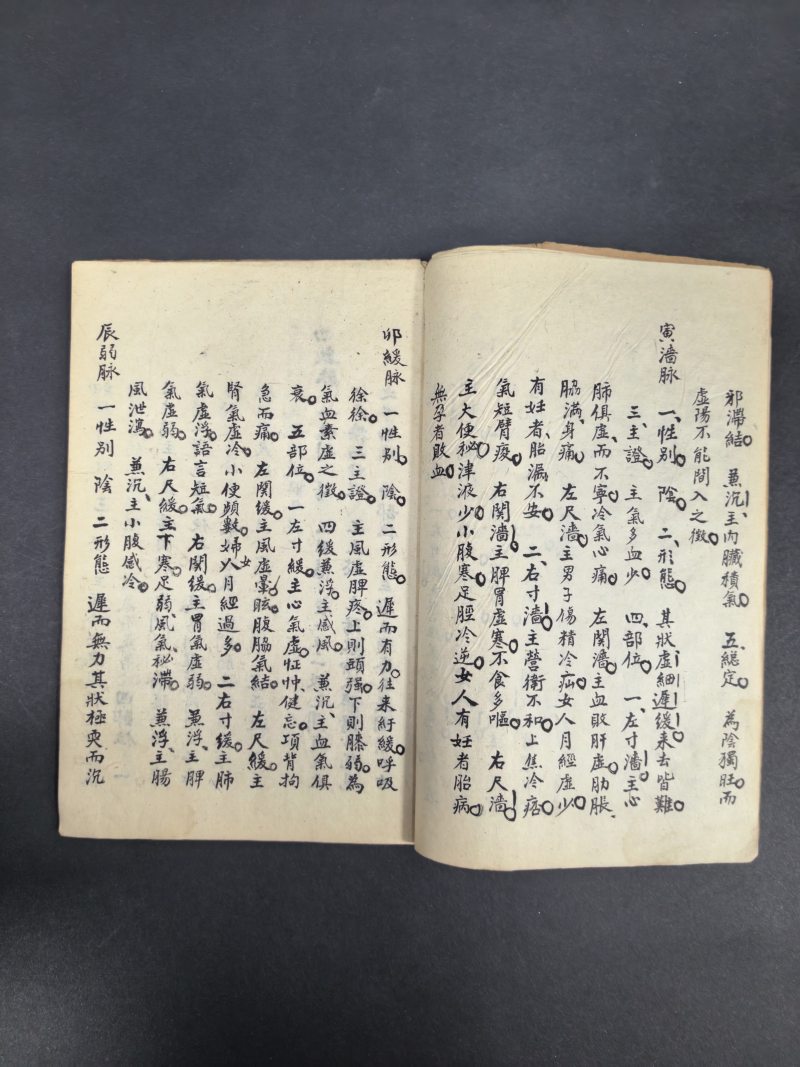 邪滯結。　兼沉、主內臟積氣。　五、總定。　為陰獨旺而
虛陽不能間入之徵。
寅濇脉　一、性別。　陰。　二、形態。　其狀虛細遲緩來去皆難。
三、主證。　主氣多血少。　四、部位。　一、左寸濇、主心
肺俱虛、而不寧冷氣心痛。　左関濇、主血敗肝虛肋脹、
脇滿、身痛。　左尺濇、主男子傷精冷疝女人月經虛少。
有妊者胎漏不安。　二、右寸濇、主營衛不和。上焦冷痞。
氣短臂痠。　右関濇、主脾胃虛寒。不食多嘔。　右尺濇、
主大便秘。津液少。小腹寒。足脛冷逆。女人有妊者胎病。
無孕者敗血。
卯緩脉　一性別。　陰。　二形態。　遲而有力。往来紆緩。呼吸
徐徐。　三主證。　主風虛脾疼。上則頭强。下則膝弱。為
氣血素虛之徵。　四緩兼浮。主感風。　兼沉、主血氣俱
衰。　五部位。　一左寸緩、主心氣虛。怔忡、健忘。項背拘
急而痛。　左関緩、主風虛暈。眩腹脇氣結。　左尺緩。主
腎氣虛冷。小便頻數。婦女人月經過多。　二右寸緩。主肺
氣虛浮。語言短氣。　右関緩。主胃氣虛弱。　兼浮、主脾
氣虛弱。　右尺緩。主下寒。足弱、風氣秘滯。　兼浮、主腸
風泄瀉。　兼沉、主小腹感冷。
辰弱脉　一性別　陰　二形態　遲而無力其狀極耎而沉